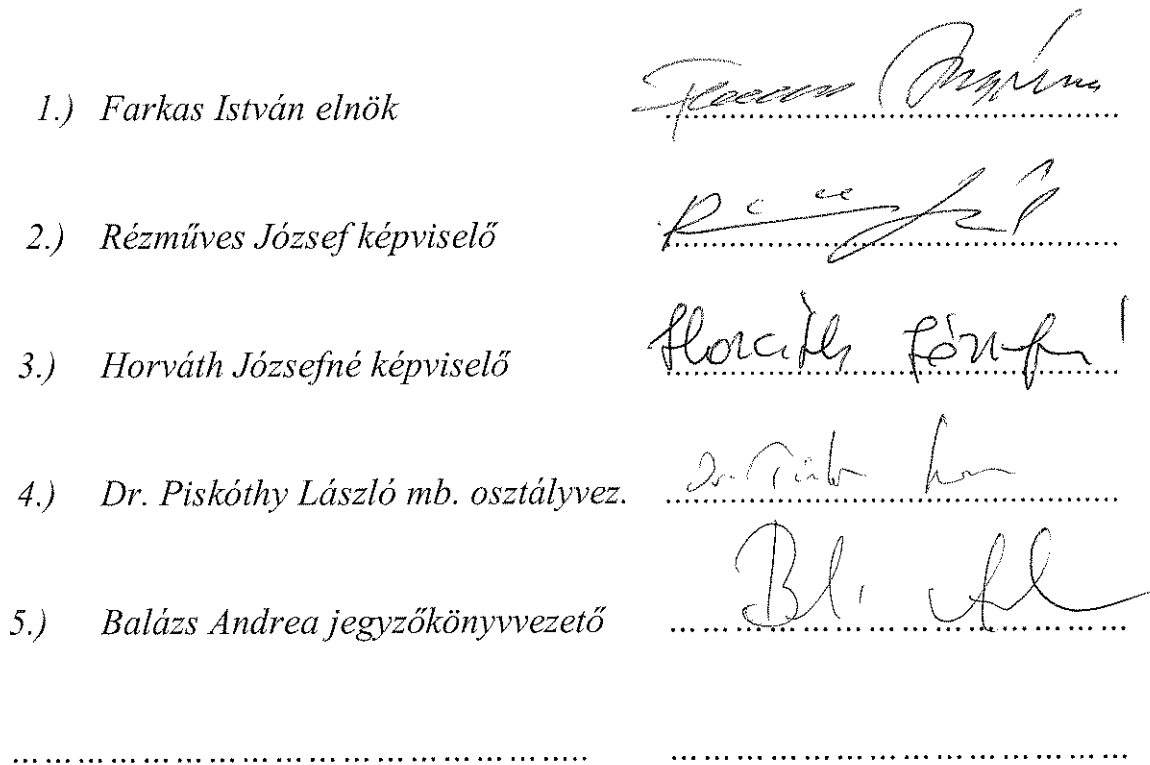 1.) Farkas István elnök
2.) Rézműves József képviselő
3.) Horváth Józsefné képviselő
Horváth
4.) Dr. Piskóthy László mb. osztályvez.
Dr.
5.) Balázs Andrea jegyzőkönyvvezető